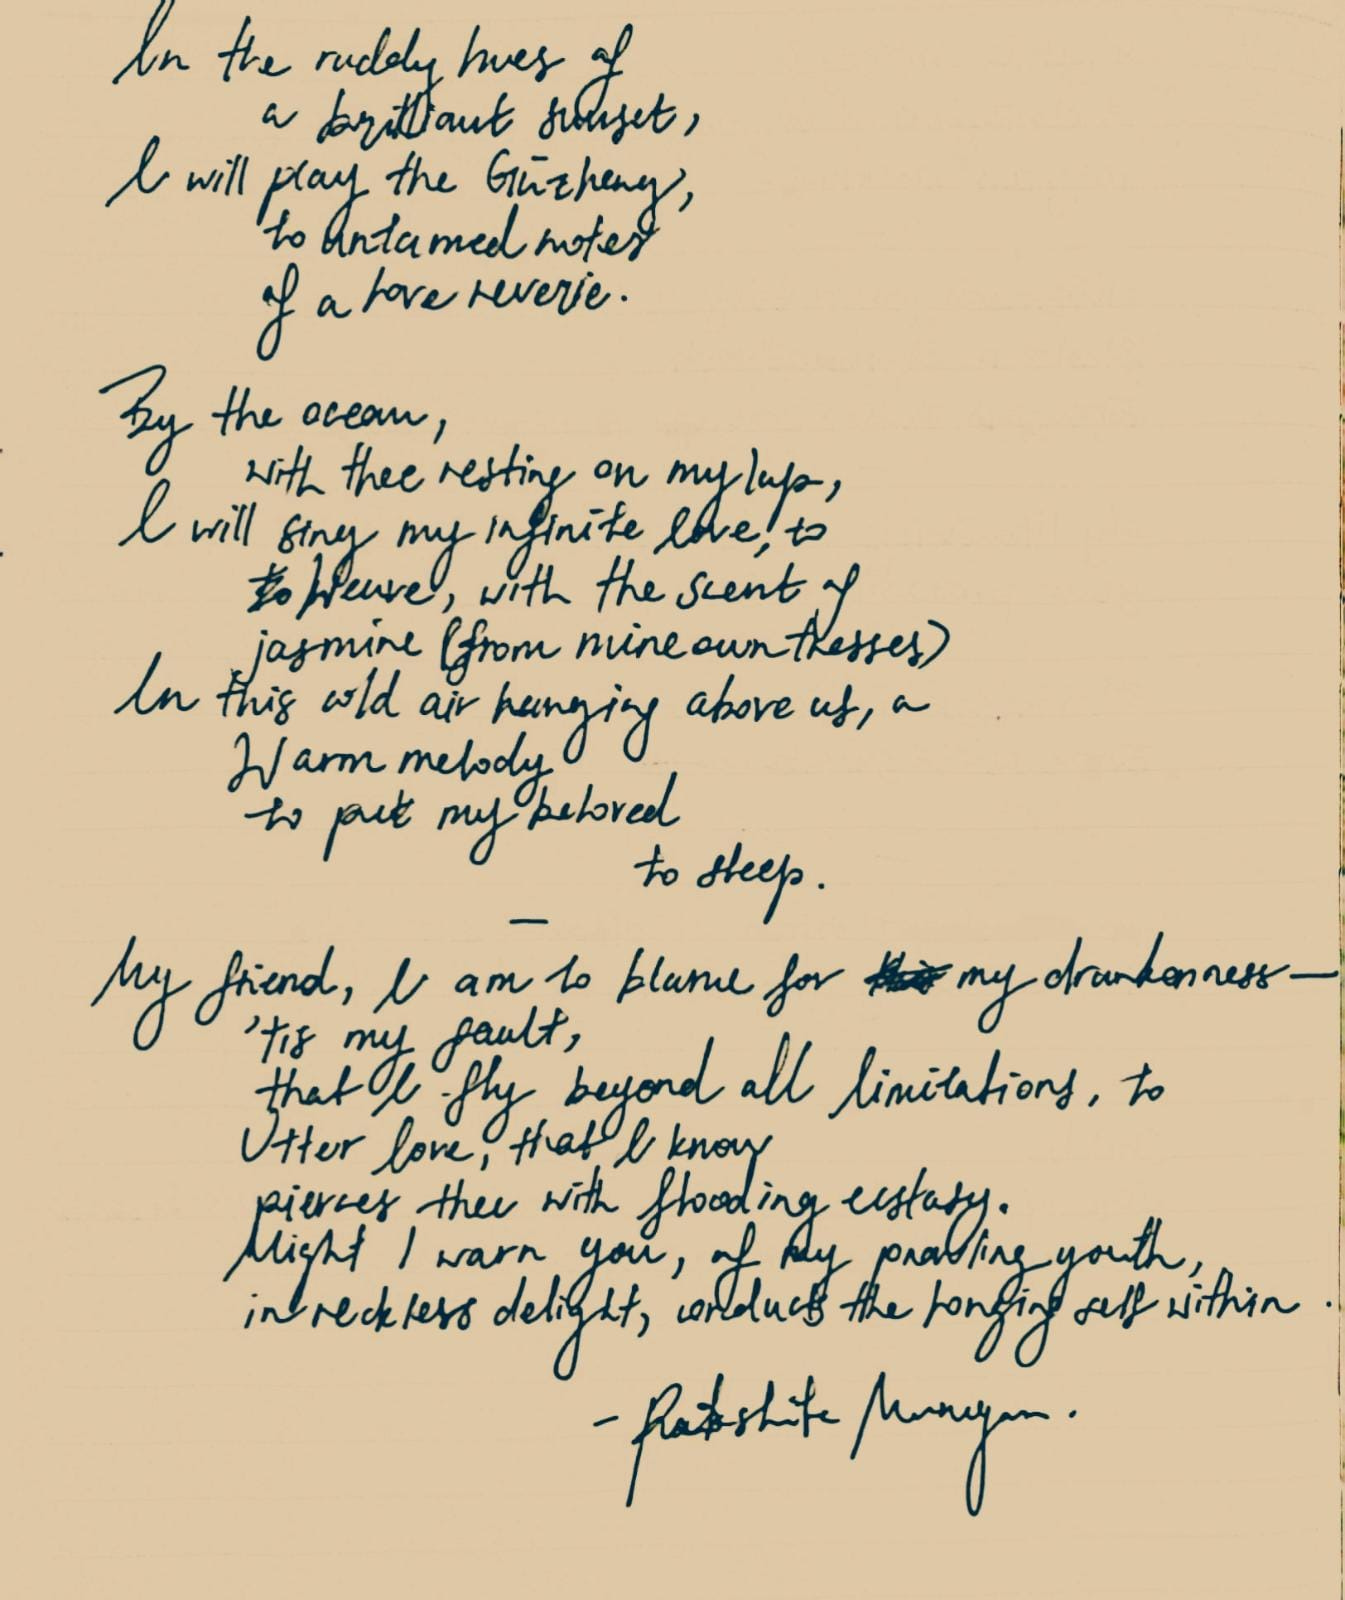 In the ruddy hues of
a brilliant sunset,
I will play the Gūzheng,
to untamed notes
of a love reverie.
By the ocean,
with thee resting on my lap,
I will sing my infinite love, to
weave, with the scent of
jasmine (from mine own tresses)
In this cold air hanging above us, a
Warm melody
to put my beloved
to sleep.
—
My friend, I am to blame for my drunkenness—
'tis my fault,
that I fly beyond all limitations, to
Utter love, that I know
pierces thee with flooding ecstasy.
Might I warn you, of my prowling youth,
in reckless delight, conducts the longing self within.
- Murugan.